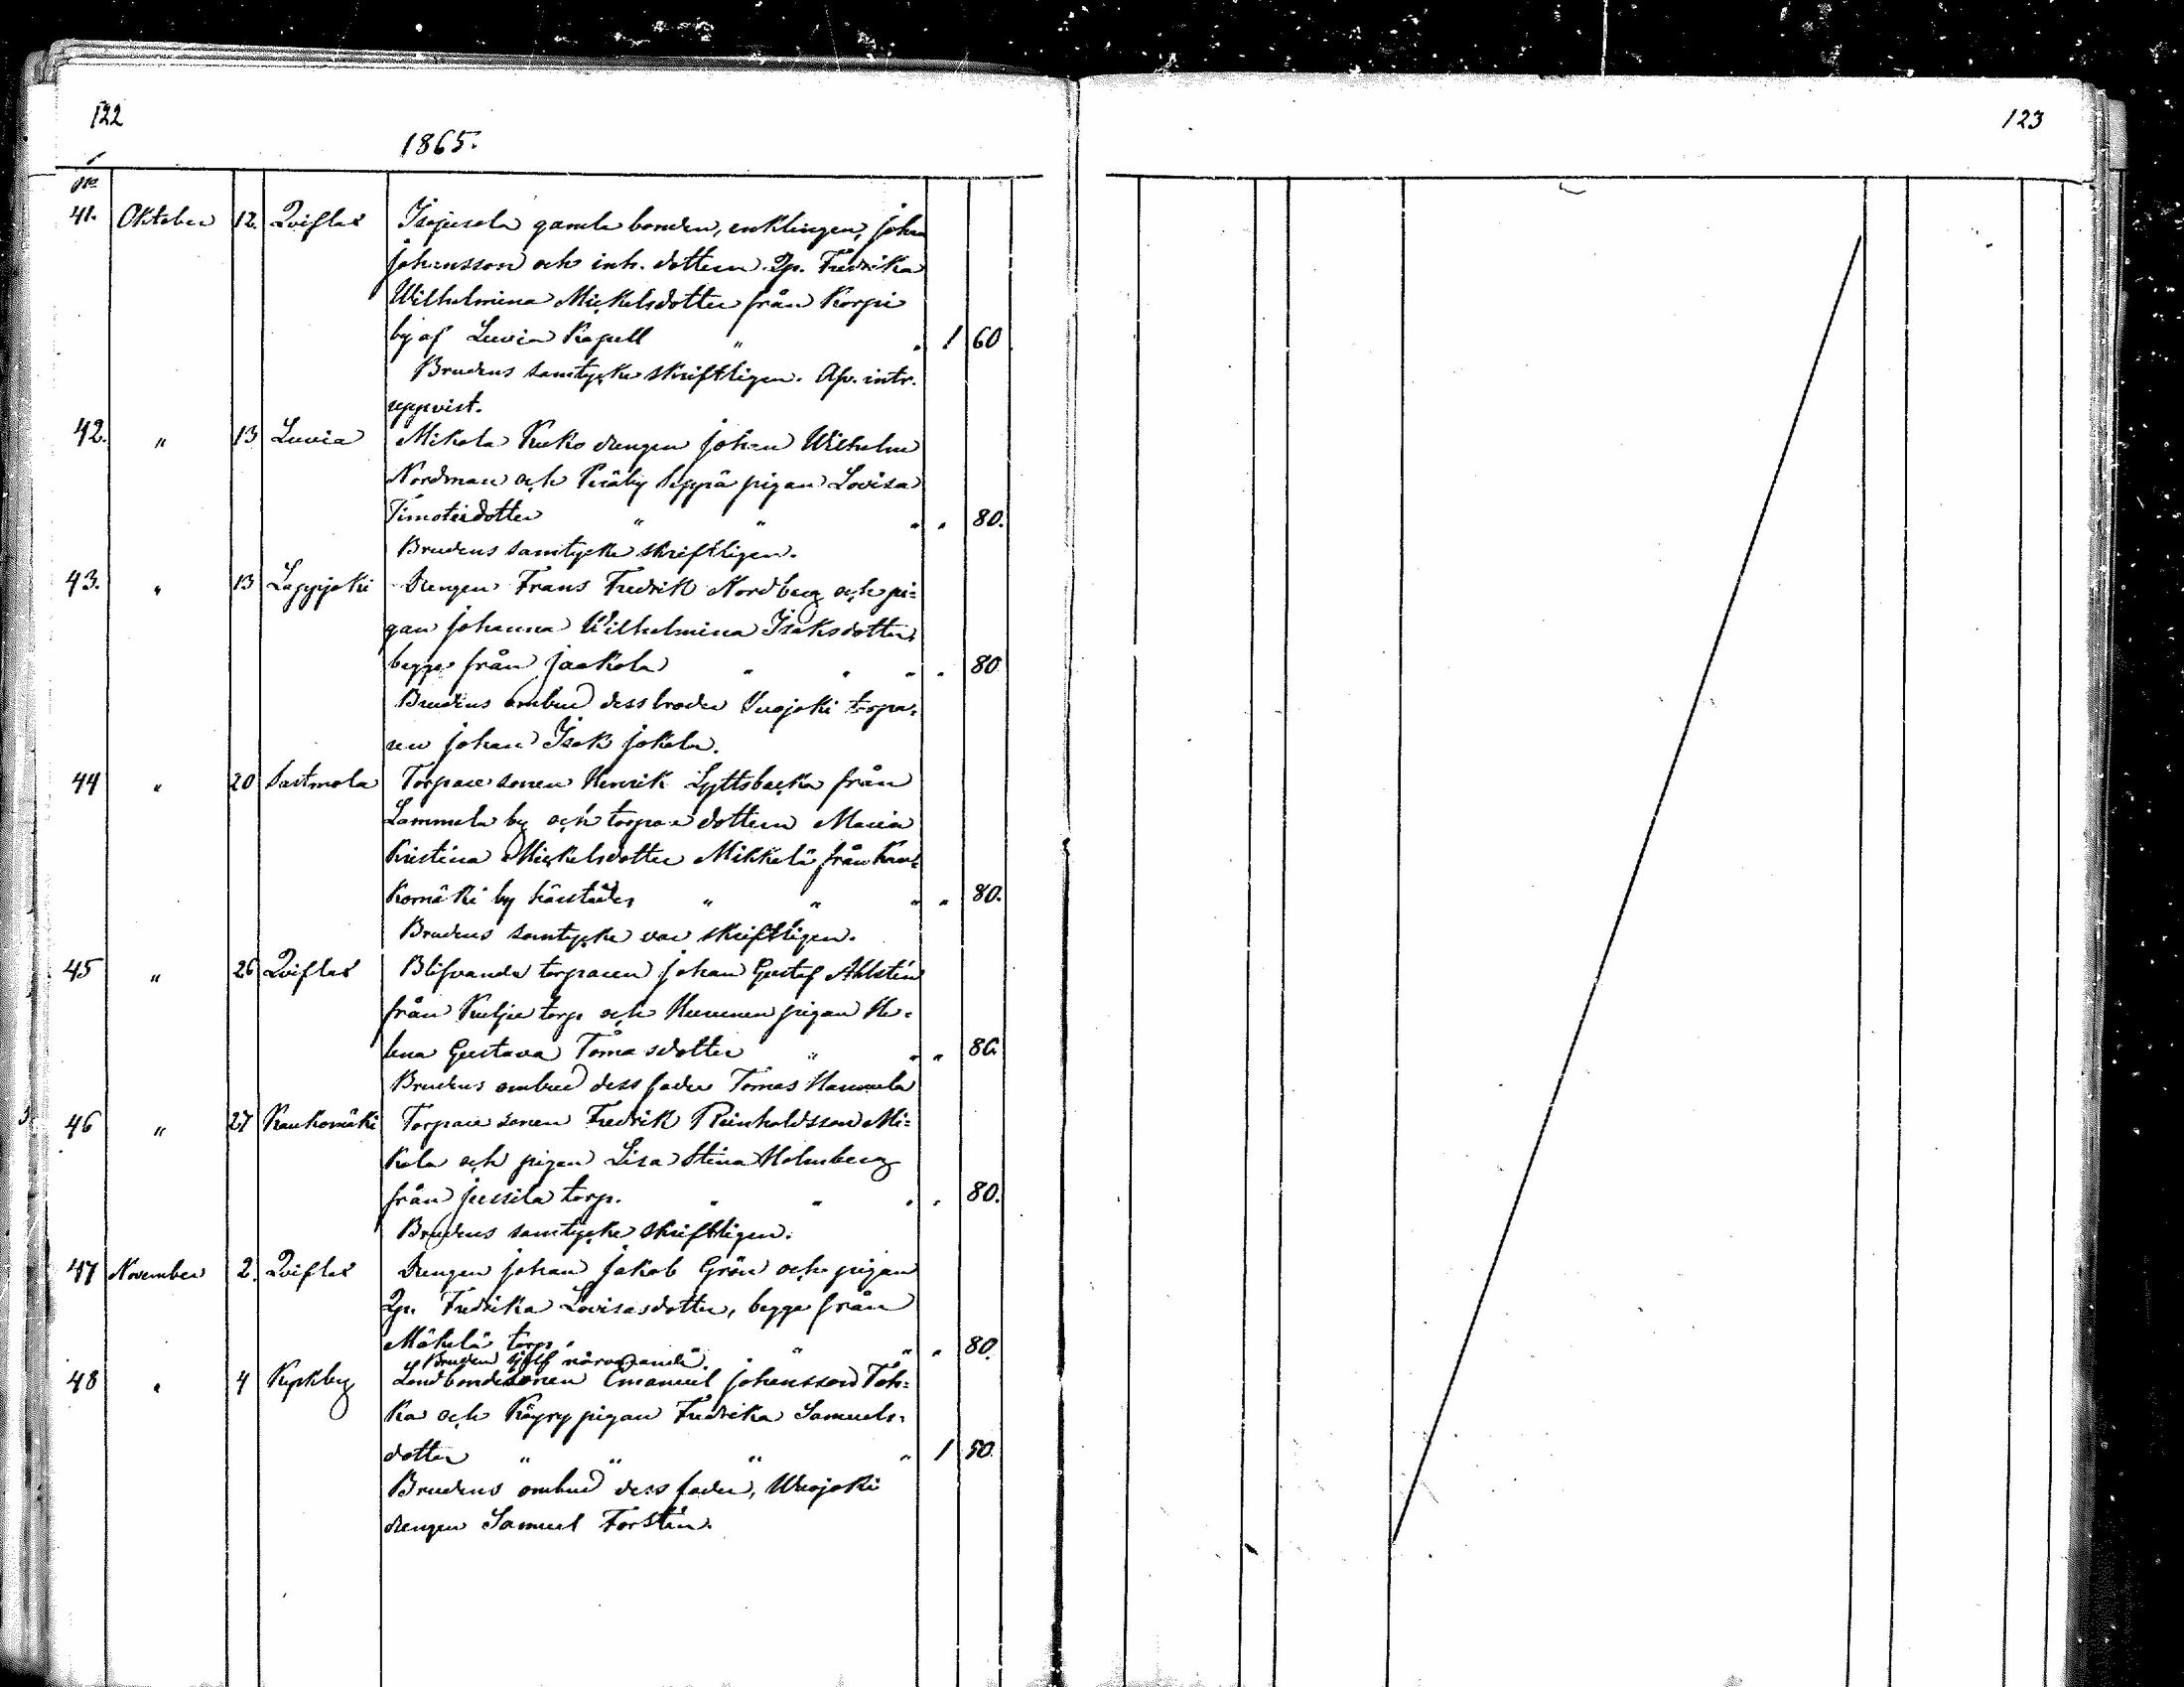 122
1865.
123
No
41. Oktober 12. Qviflax Isojusela gamle bonden, enklingen, Johan
Johansson och inh. dottern Qp. Fredrika
Wilhelmina Mickelsdotter från Korpi
by af Luvia Kapell " . 1 60
Brudens samtycke skriftligen. Afv. intr.
uppvist.
42. " 13 Luvia Mikola Kuko drengen Johan Wilhelm
Nordman och Peräby Seppä pigan Lovisa
Timoteidotter " " " " 80.
Brudens samtycke skriftligen.
43. " 13 Lappijoki Drengen Frans Fredrik Nordberg och pi=
gan Johanna Wilhelmina Isaksdotter,
begge från Jaakola " " " " 80
Brudens ombud dess broder Kuojoki torpa=
ren Johan Isak Jokela.
44 " 20 Sastmola Torpare sonen Henrik Lyttsbacka från
Lammela by och torpare dottern Maria
Kristina Mickelsdotter Mikkelä från Kau=
komäki by härstädes " " " " 80.
Brudens samtycke var skriftligen.
45 " 26 Qviflax Blifvande torparen Johan Gustaf Ahlstén
från Kulju torp och pigan He=
lena Gustava Tomasdotter " " " 80.
Brudens ombud dess fader Tomas
46 " 27 Kaukomäki Torpare sonen Fredrik Reinholdsson Mi=
kola och pigan Lisa Stina Holmberg
från Jussila torp. " " " " 80.
Brudens samtycke skriftligen.
47 November 2. Qviflax Drengen Johan Jakob Grön och pigan
Qp. Fredrika Lovisasdotter, begge från
Mäkelä torp. " " " 80.
Bruden sjelf närvarande.
48 " 4 Kyrkby Landbondesonen Emanuel Johansson Toh=
ka och Köpry pigan Fredrika Samuels=
dotter " " " " 1 50.
Brudens ombud dess fader, Wuojoki
drengen Samuel Forstén.